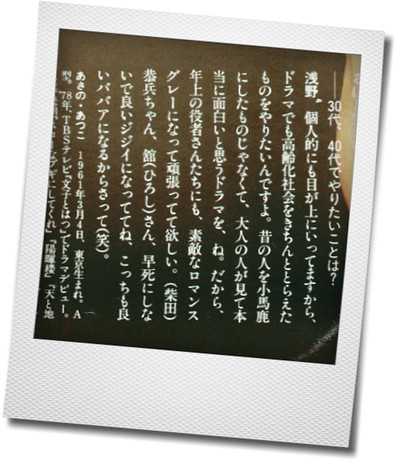 ――30代、40代でやりたいことは?
浅野 個人的にも目が上にいってますから、
ドラマでも高齢化社会をきちんととらえた
ものをやりたいんですよ。昔の人を小馬鹿
にしたものじゃなくて、大人の人が見て本
当に面白いと思うドラマを、ね。だから、
年上の役者さんたちにも、素敵なロマンス
グレーになって頑張ってて欲しい。(柴田)
恭兵ちゃん、舘(ひろし)さん、早死にしな
いで良いジジイになっててね、こっちも良
いババアになるからさって(笑)。
あさの・あつこ 1961年3月4日、東京生まれ。A
型。'78年、TBSテレビ『文子とはつ』でドラマデビュー。
にしてくれ』『陽暉楼』『天と地